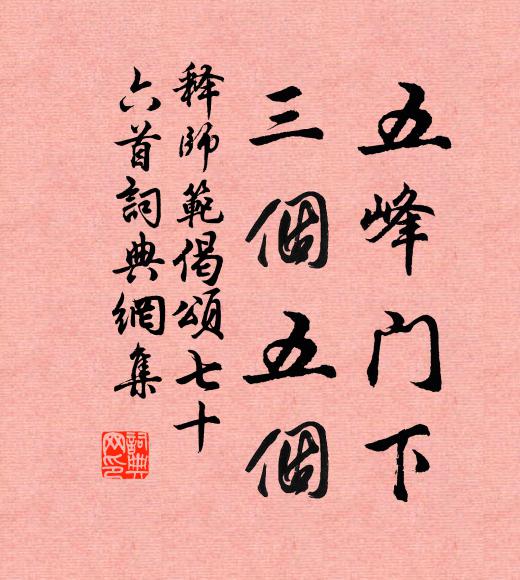 五峰门下
三個五個
释師範偈頌七十
六首詞典網集
詞典
网印